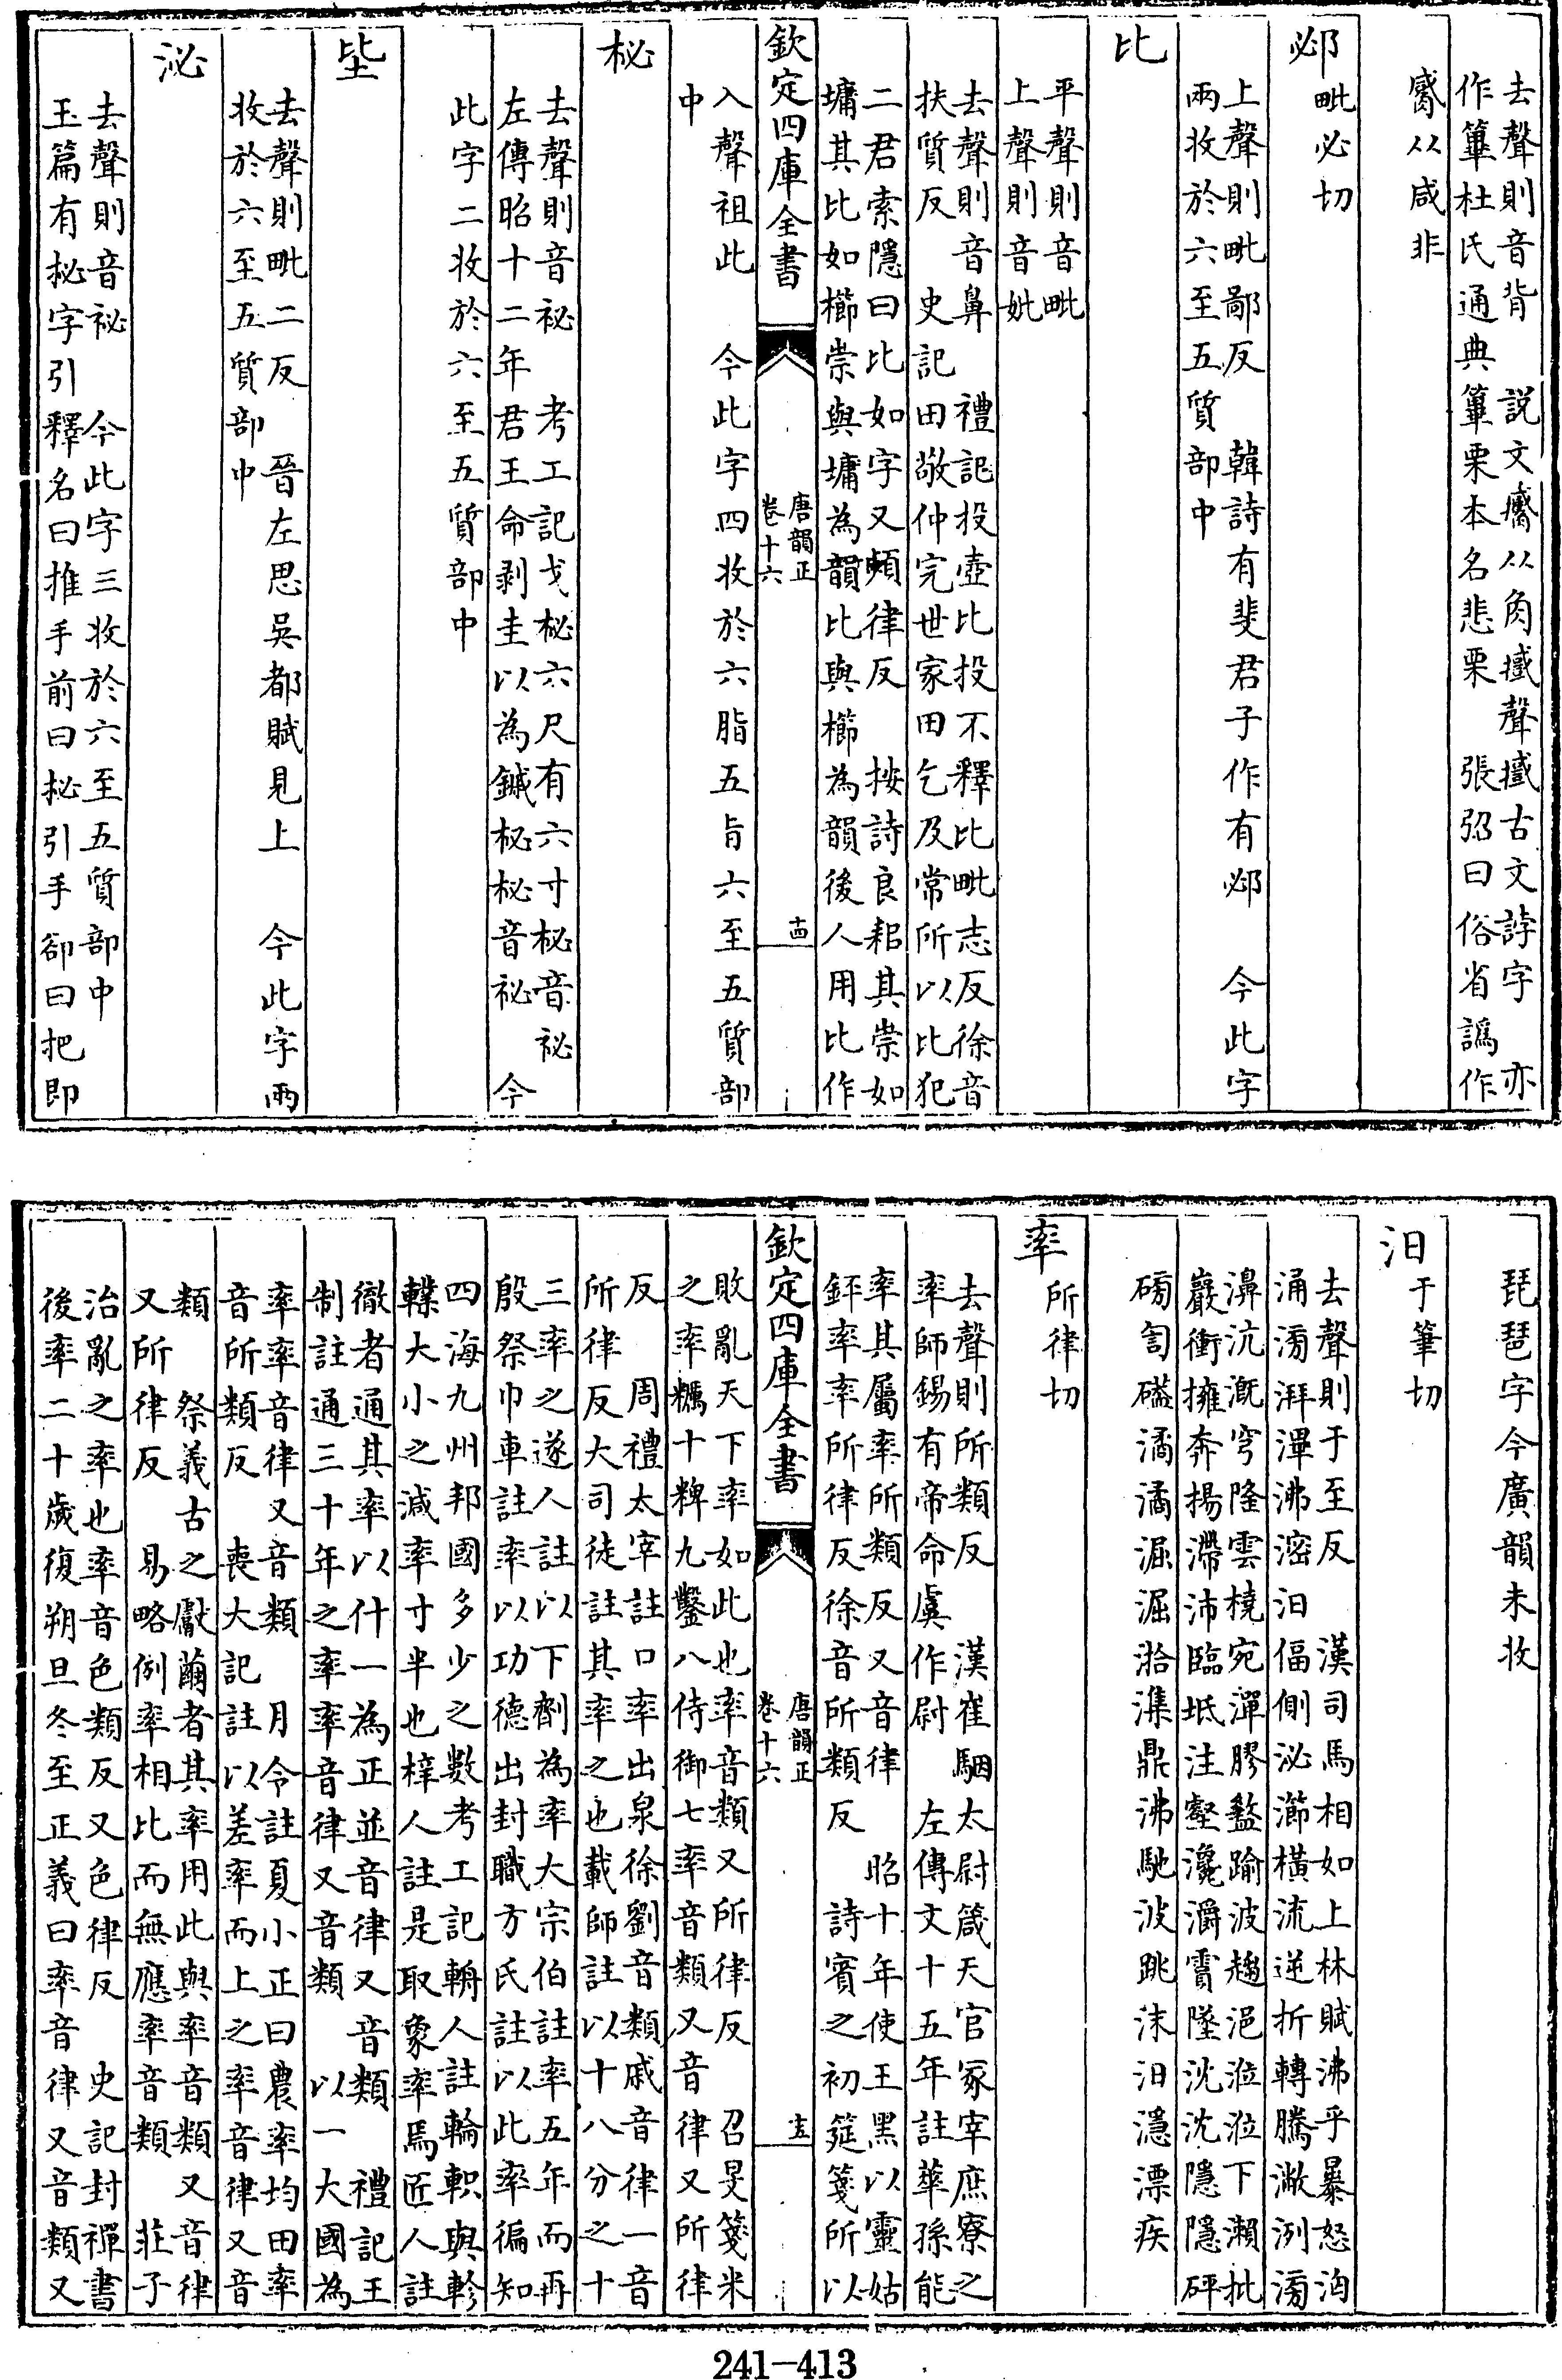 去聲則音背　説文䨵从角𧥣聲𧥣古文誖字　亦
作篳杜氏通典篳栗本名悲栗　張弨曰俗省譌作
觱从咸非
邲毗必切
上聲則毗鄙反　韓詩有斐君子作有邲　今此字
兩收於六至五質部中
比
平聲則音毗
上聲則音妣
去聲則音鼻　禮記投壺比投不釋比毗志反徐音
扶質反　史記田敬仲完世家田乞及常所以比犯
二君索隱曰比如字又頻律反　按詩良耜其崇如
墉其比如櫛崇與墉為韻比與櫛為韻後人用比作
欽定四庫全書
唐韻正
卷十六
十四
入聲祖此　今此字四收於六脂五旨六至五質部
中
柲
去聲則音祕　考工記戈柲六尺有六寸柲音祕
左傳昭十二年君王命剥圭以為鏚柲柲音祕　今
此字二收於六至五質部中
坒
去聲則毗二反　晉左思吳都賦見上　今此字兩
收於六至五質部中
泌
去聲則音祕　今此字三收於六至五質部中
玉篇有㧙字引釋名曰推手前曰㧙引手卻曰把即
琵琶字今廣韻未收
汨于筆切
去聲則于至反　漢司馬相如上林賦沸乎暴怒洶
涌滂湃滭沸滵汨偪側泌瀄橫流逆折轉騰潎洌滂
濞沆溉穹隆雲橈宛潬膠盭踰波趨浥涖涖下瀨批
巖衝擁奔揚滯沛臨坻注壑瀺灂霣墜沈沈隱隱砰
磅訇礚潏潏淈淈湁潗鼎沸馳波跳沫汨㴔漂疾
率所律切
去聲則所類反　漢崔駰太尉箴天官冢宰庶寮之
率師錫有帝命虞作尉　左傳文十五年註華孫能
率其屬率所類反又音律　昭十年使王黑以靈姑
鉟率率所律反徐音所類反　詩賓之初筵箋所以
欽定四庫全書
唐韻正
卷十六
十五
敗亂天下率如此也率音類又所律反　召旻箋米
之率糲十粺九鑿八侍御七率音類又音律又所律
反　周禮太宰註口率出泉徐劉音類戚音律一音
所律反大司徒註其率之也載師註以十八分之十
三率之遂人註以下劑為率大宗伯註率五年而再
殷祭巾車註率以功德出封職方氏註以此率徧知
四海九州邦國多少之數考工記輈人註輪軹與軫
轐大小之減率寸半也梓人註是取象率焉匠人註
徹者通其率以什一為正並音律又音類　禮記王
制註通三十年之率率音律又音類　以一大國為
率率音律又音類　月令註夏小正曰農率均田率
音所類反　喪大記註以差率而上之率音律又音
類　祭義古之獻繭者其率用此與率音類又音律
又所律反　易略例率相比而無應率音類　莊子
治亂之率也率音色類反又色律反　史記封禪書
後率二十歲復朔旦冬至正義曰率音律又音類又
241-413